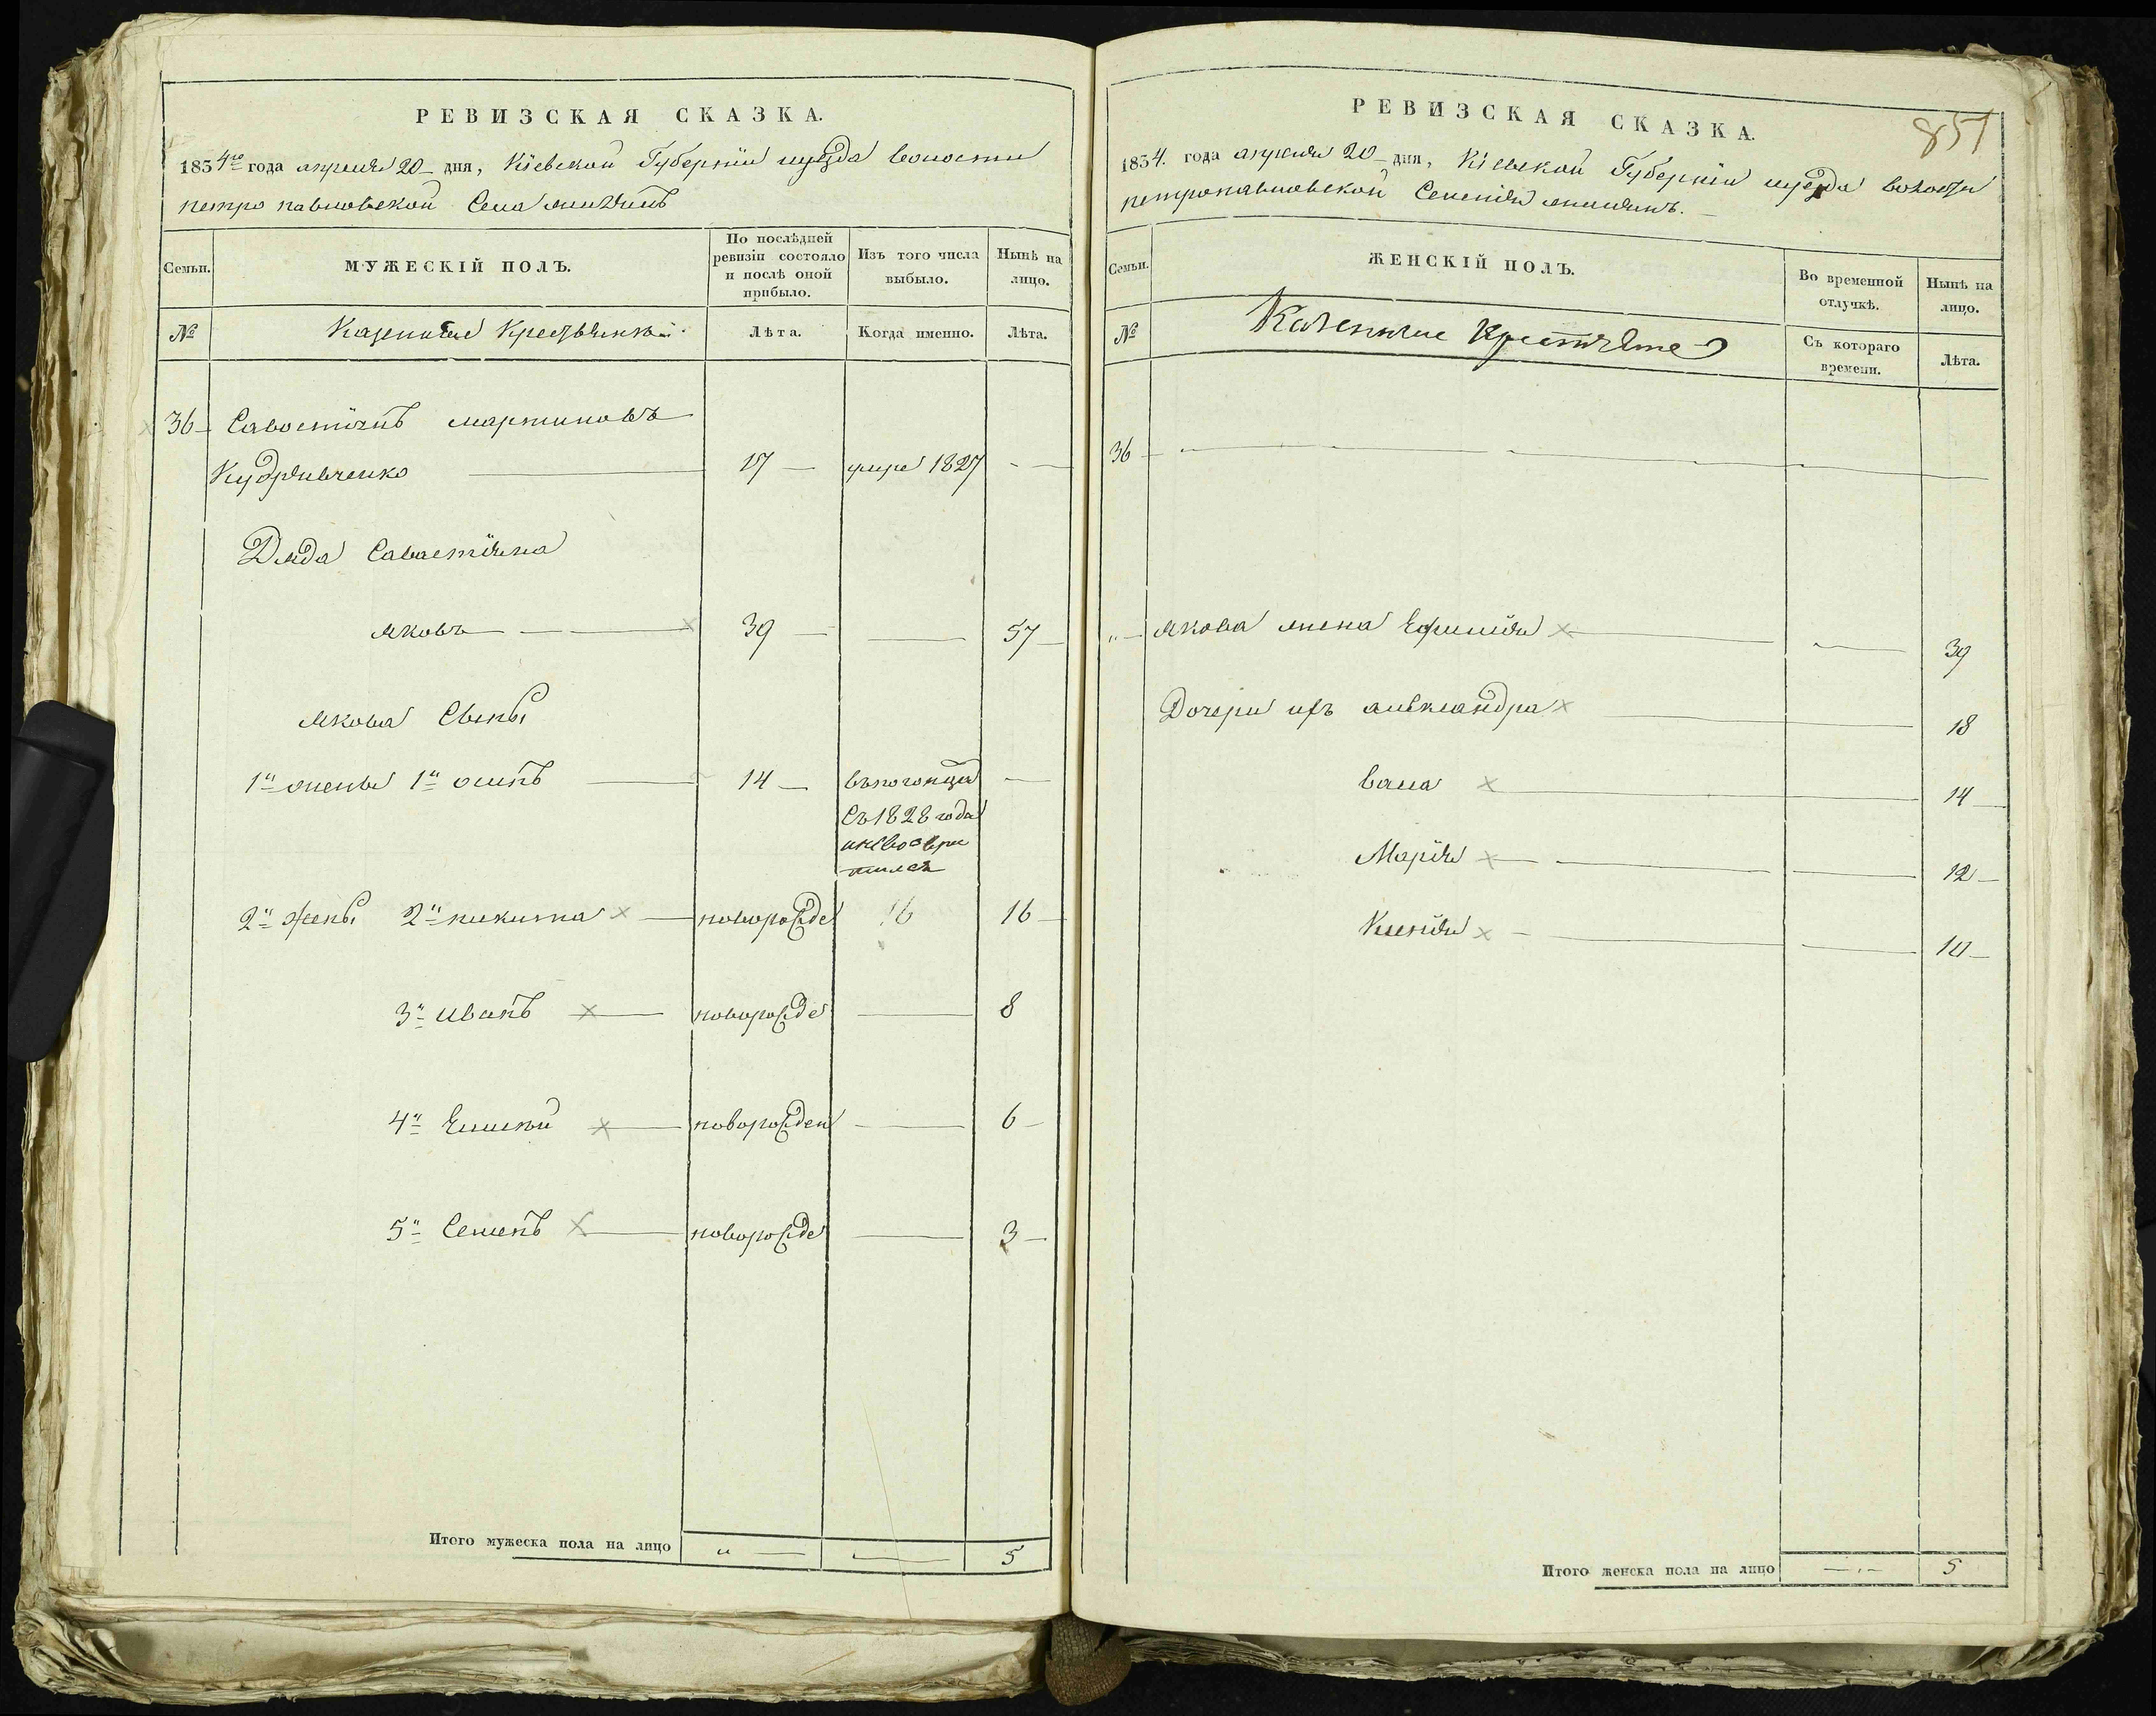 РЕВИЗСКАЯ СКАЗКА.
1834го года апреля 20 дня, Кіевской Губерніи уезда волости
петро павловской Села
Семьи.
МУЖЕСКІЙ ПОЛЪ.
По послѣдней ревизіи состояло и послѣ оной прибыло.
Изъ того числа выбыло.
Нынѣ на лицо.
№
Казенные Крестьянѣ
Лѣта.
Когда именно.
Лѣта.
36 Савостіянъ мартиновъ
Кудрявченко 17 умре 1827
Дядя Савастіяна
яковъ 39 57
якова Сыны
1й жены 1й осипъ 14
съ 1828 года
2й жены 2й никита новорожде 16 16
3й иванъ новорожде 8
4й новорожден 6
5й Семенъ новорожде 3
Итого мужеска пола на лицо 5
РЕВИЗСКАЯ СКАЗКА.
851
1834. года апреля 20 дня, Кіевской Губерніи уезда волости
петропавловской
Семьи.
ЖЕНСКІЙ ПОЛЪ.
Во временной отлучкѣ.
Нынѣ на лицо.
№
Казенные Крестьяне
Съ котораго времени.
Лѣта.
36
якова жена 39
Дочери ихъ александра 18
14
Марія 12
10
Итого женска пола на лицо 5